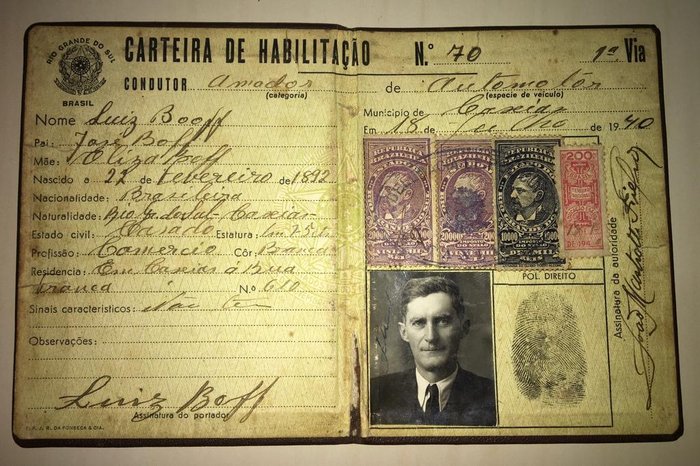 RIO GRANDE DO SUL
BRASIL
CARTEIRA DE HABILITAÇÃO N.º 70 1ª Via
CONDUTOR Amador de Automotor
(categoria) (especie de veiculo)
Nome Luiz Boff
Municipio de Caxias
Em 18 de de 1940
Pai: José Boff
Mãe: Eliza Boff
Nascido a 22 de Fevereiro de 1892
Nacionalidade: Brasileira
Naturalidade: Rio G. do Sul - Caxias
Estado civil: Casado Estatura: 1m75
Profissão: Comercio Côr: Branca
Residencia: Em Caxias á Rua
N.º 610
Sinais característicos: Não tem
Observações:
Luiz Boff
Assinatura do portador
REPUBLICA
BRAZIL
200
POL. DIREITO
Assinatura da autoridade
João
J. R. DA FONSECA & CIA.